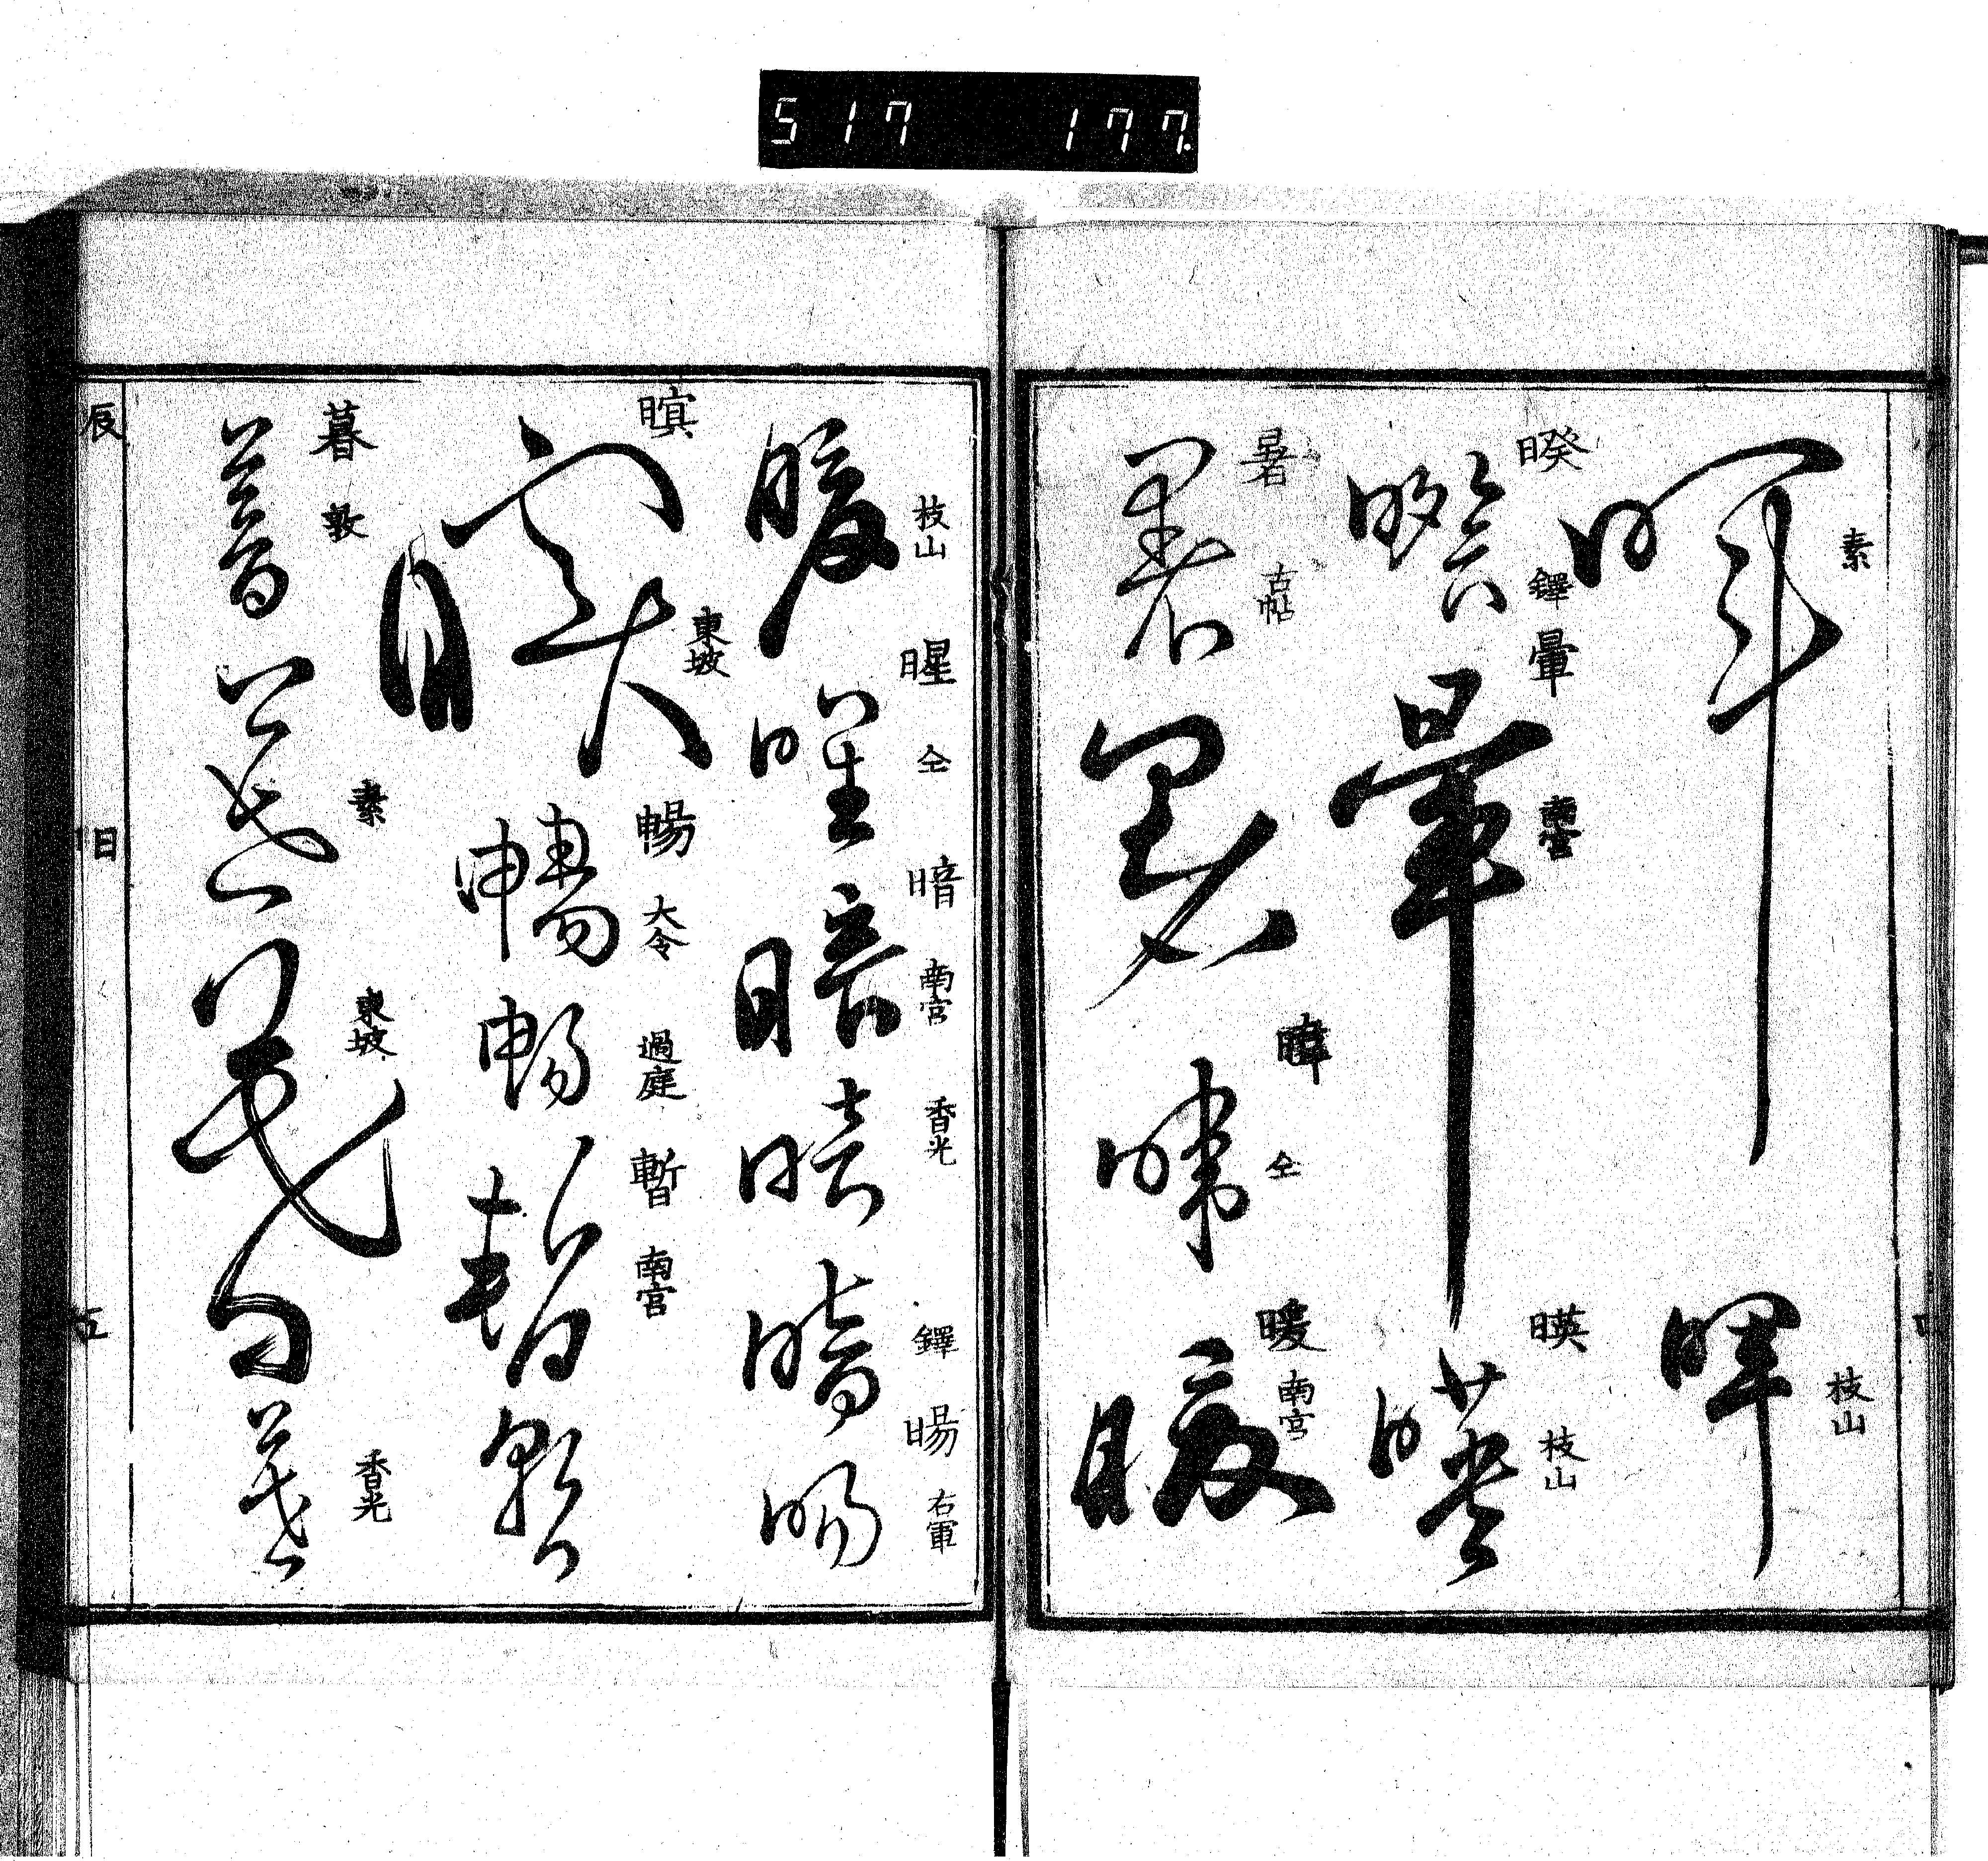 517 177.
暉 素 暉 枝山
暌 鐸 暈 南宮 暎 枝山
暑 古帖 暐 仝 暖 南宮
暖 枝山 暒 仝 暗 南宮 香光 鐸 暘 右軍
暝 東坡 暢 大令 過庭 暫 南宮
暮 敦 素 東坡 香光
辰 日 五